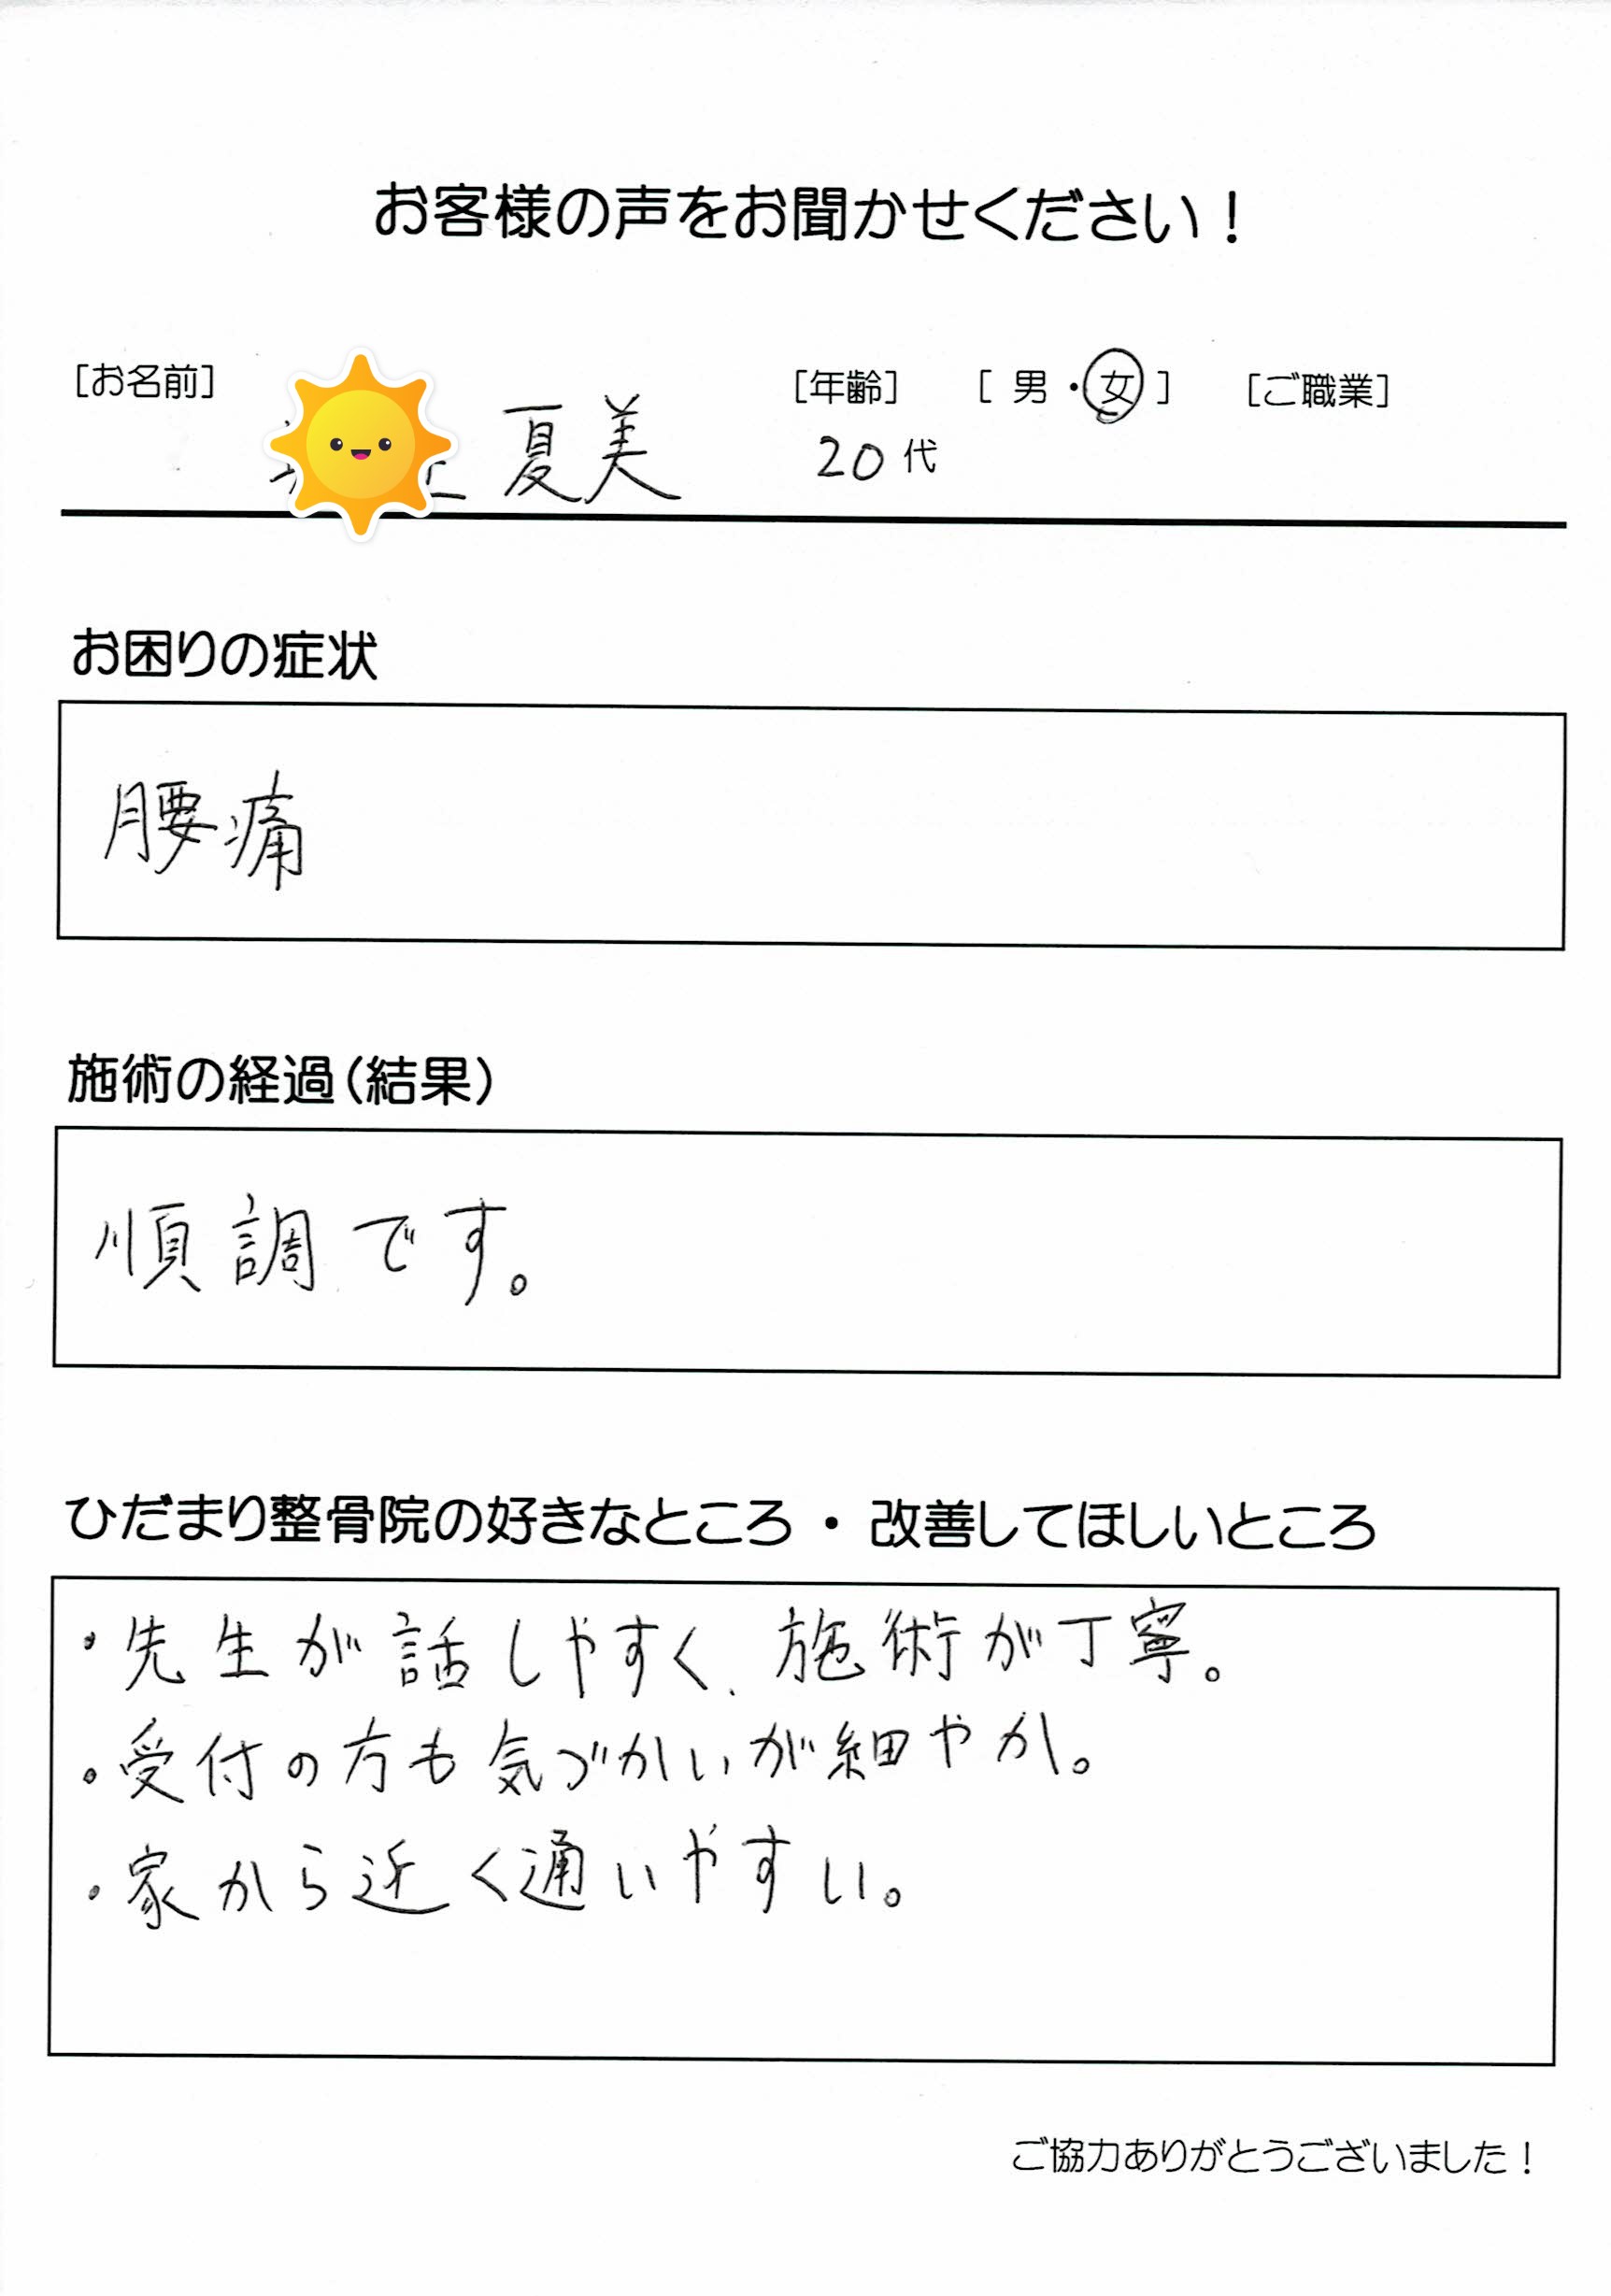 お客様の声をお聞かせください！
[お名前] [年齢] [ 男・女 ] [ご職業]
夏美 20代
お困りの症状
腰痛
施術の経過（結果）
順調です。
ひだまり整骨院の好きなところ・改善してほしいところ
・先生が話しやすく、施術が丁寧。
・受付の方も気づかいが細やか。
・家から近く通いやすい。
ご協力ありがとうございました！